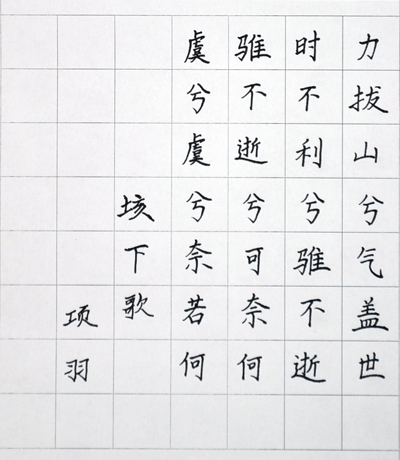 力拔山兮气盖世
时不利兮骓不逝
骓不逝兮可奈何
虞兮虞兮奈若何
垓下歌
项羽